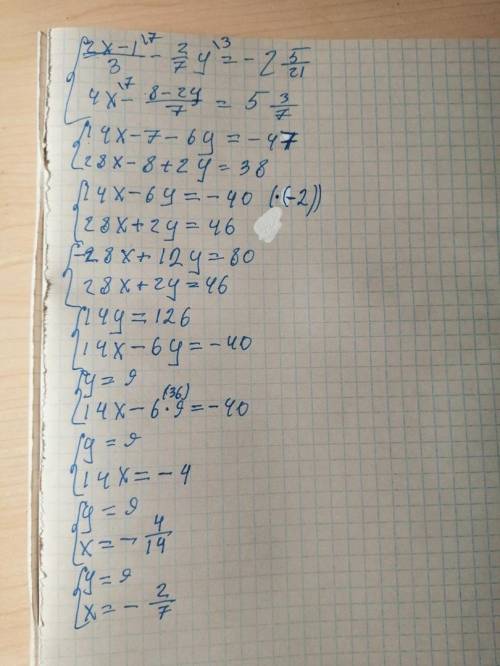 (2x-1)/3 \7 - 2/7 y \3 = -2 5/21
4x \7 - (8-2y)/7 = 5 3/7
14x-7-6y=-47
28x-8+2y=38
14x-6y=-40 (·(-2))
28x+2y=46
-28x+12y=80
28x+2y=46
14y=126
14x-6y=-40
y=9
14x-6·9 (36) =-40
y=9
14x=-4
y=9
x=-4/14
y=9
x=-2/7